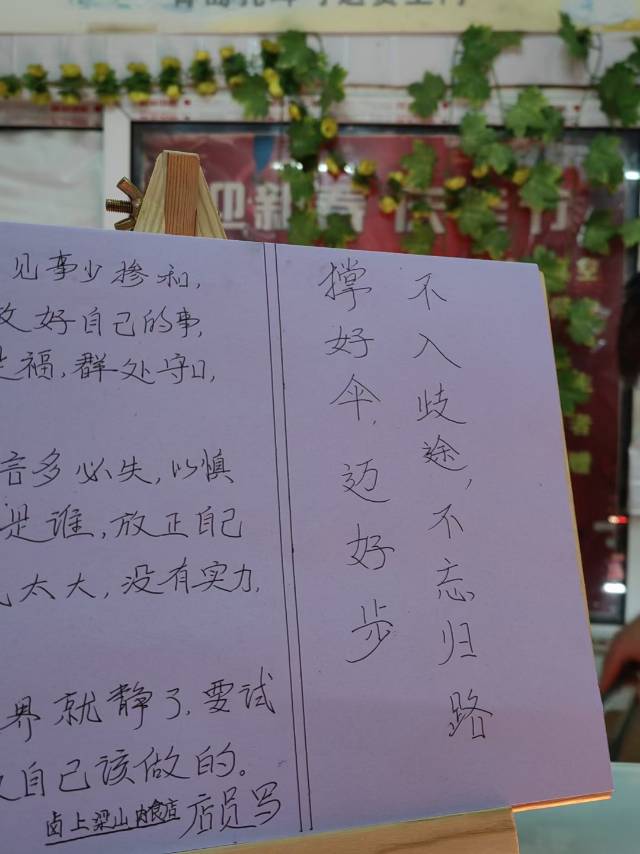 见事少掺和,
好自己的事,
福,群处守口,
言多必失,以慎
是谁,放正自己
太大,没有实力,
界就静了,要试
自己该做的。
卤上梁山肉食店 店员写
不入歧途,不忘归路
撑好伞,迈好步
迎新春 庆